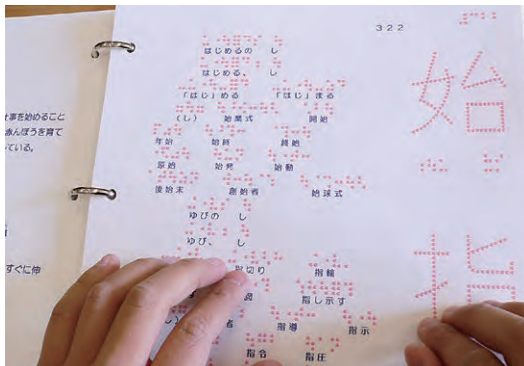 仕事を始めること
赤んぼうを育て
ている。
すぐに伸
322
はじめるの し
はじめる、 し
「はじ」める 「はじ」まる
(し) 始業式 開始
年始 始終 終始
原始 始発 始動
後始末 創始者 始球式
ゆびの し
ゆび、 し
指切り 指輪
指し示す
し) 者 指導 指示
指令 指圧
始
指